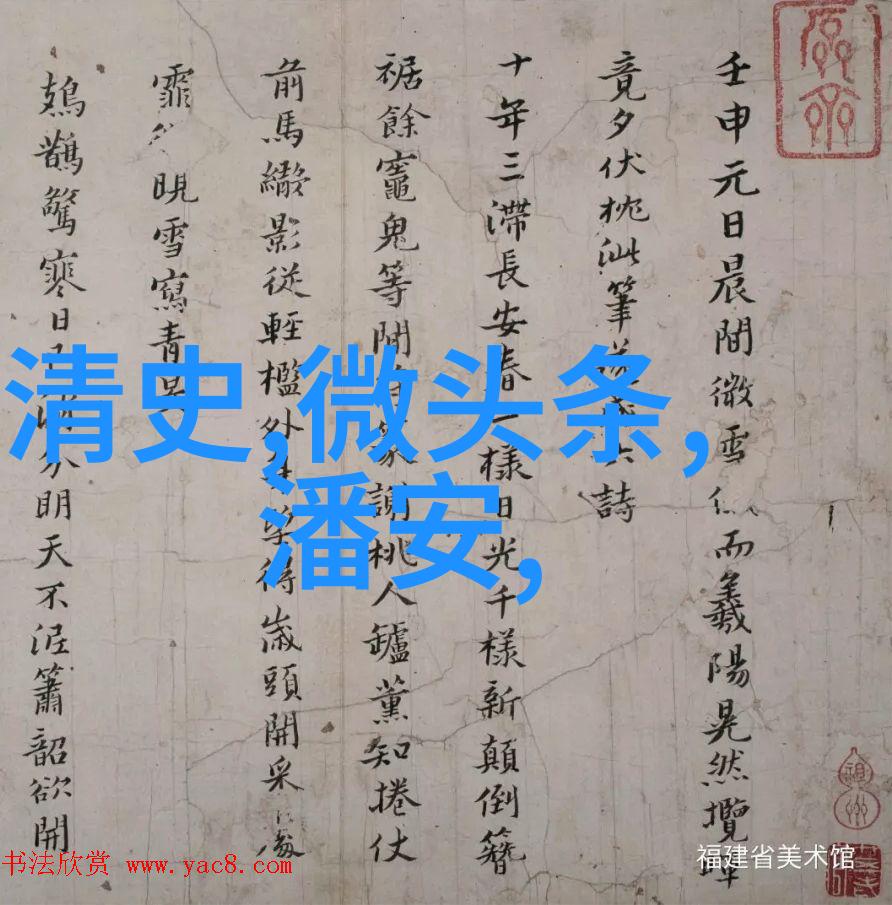 壬申元日晨間微雪而羲陽晃然攬
竟夕伏枕泚筆詩
十年三滯長安春一樣日光千樣新顛倒簪
裾餘竈鬼等閒謝桃人鑪薰知捲仗
前馬影從輕檻外得歲頭開采
霏晛雪寫青
鳷鵲驚寒日明天不泥簫韶欲開
清史,微头条,
潘安,
书法欣赏 www.yac8.com
福建省美术馆